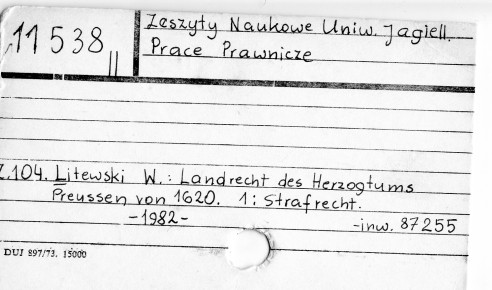 11 538 II
Zeszyty Naukowe Uniw. Jagiell.
Prace Prawnicze
Z.104. Litewski W.: Landrecht des Herzogtums
Preussen von 1620. 1: Strafrecht.
-1982-
-inw. 87255
DUJ 897/73. 15000